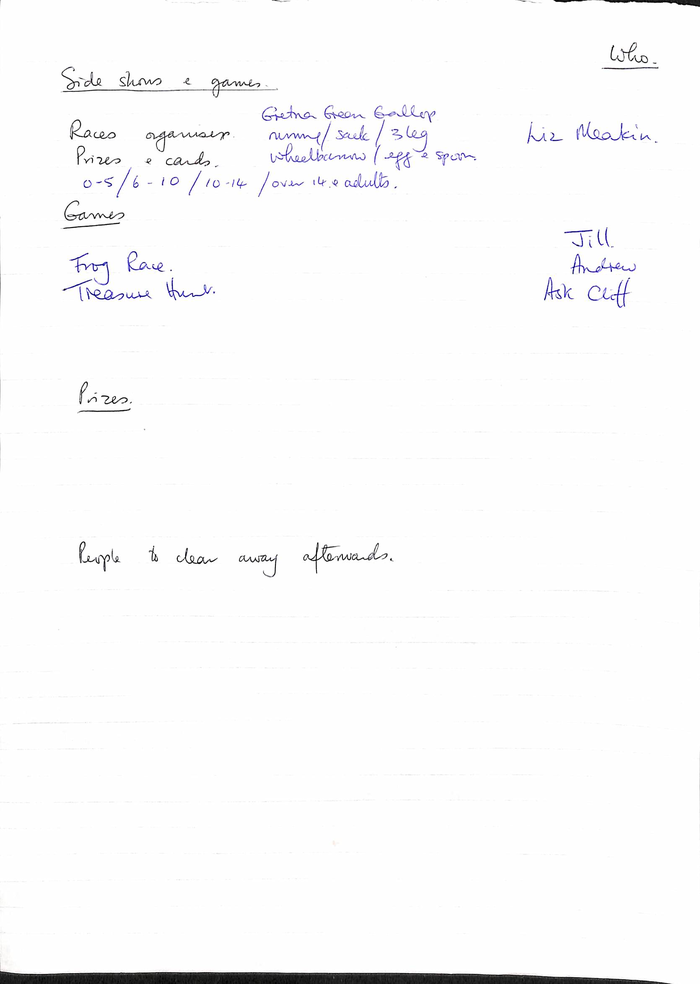 Who.
Side shows e games.
Gretna Green Gallop
Races organiser. running/ sack / 3 leg Liz Meakin.
Prizes e cards. wheelbarrow / egg e spoon.
0-5 / 6-10 / 10-14 / over 14 e adults.
Games
Jill.
Frog Race. Andrew
Treasure Hunt. Ask Cliff
Prizes.
People to clear away afterwards.